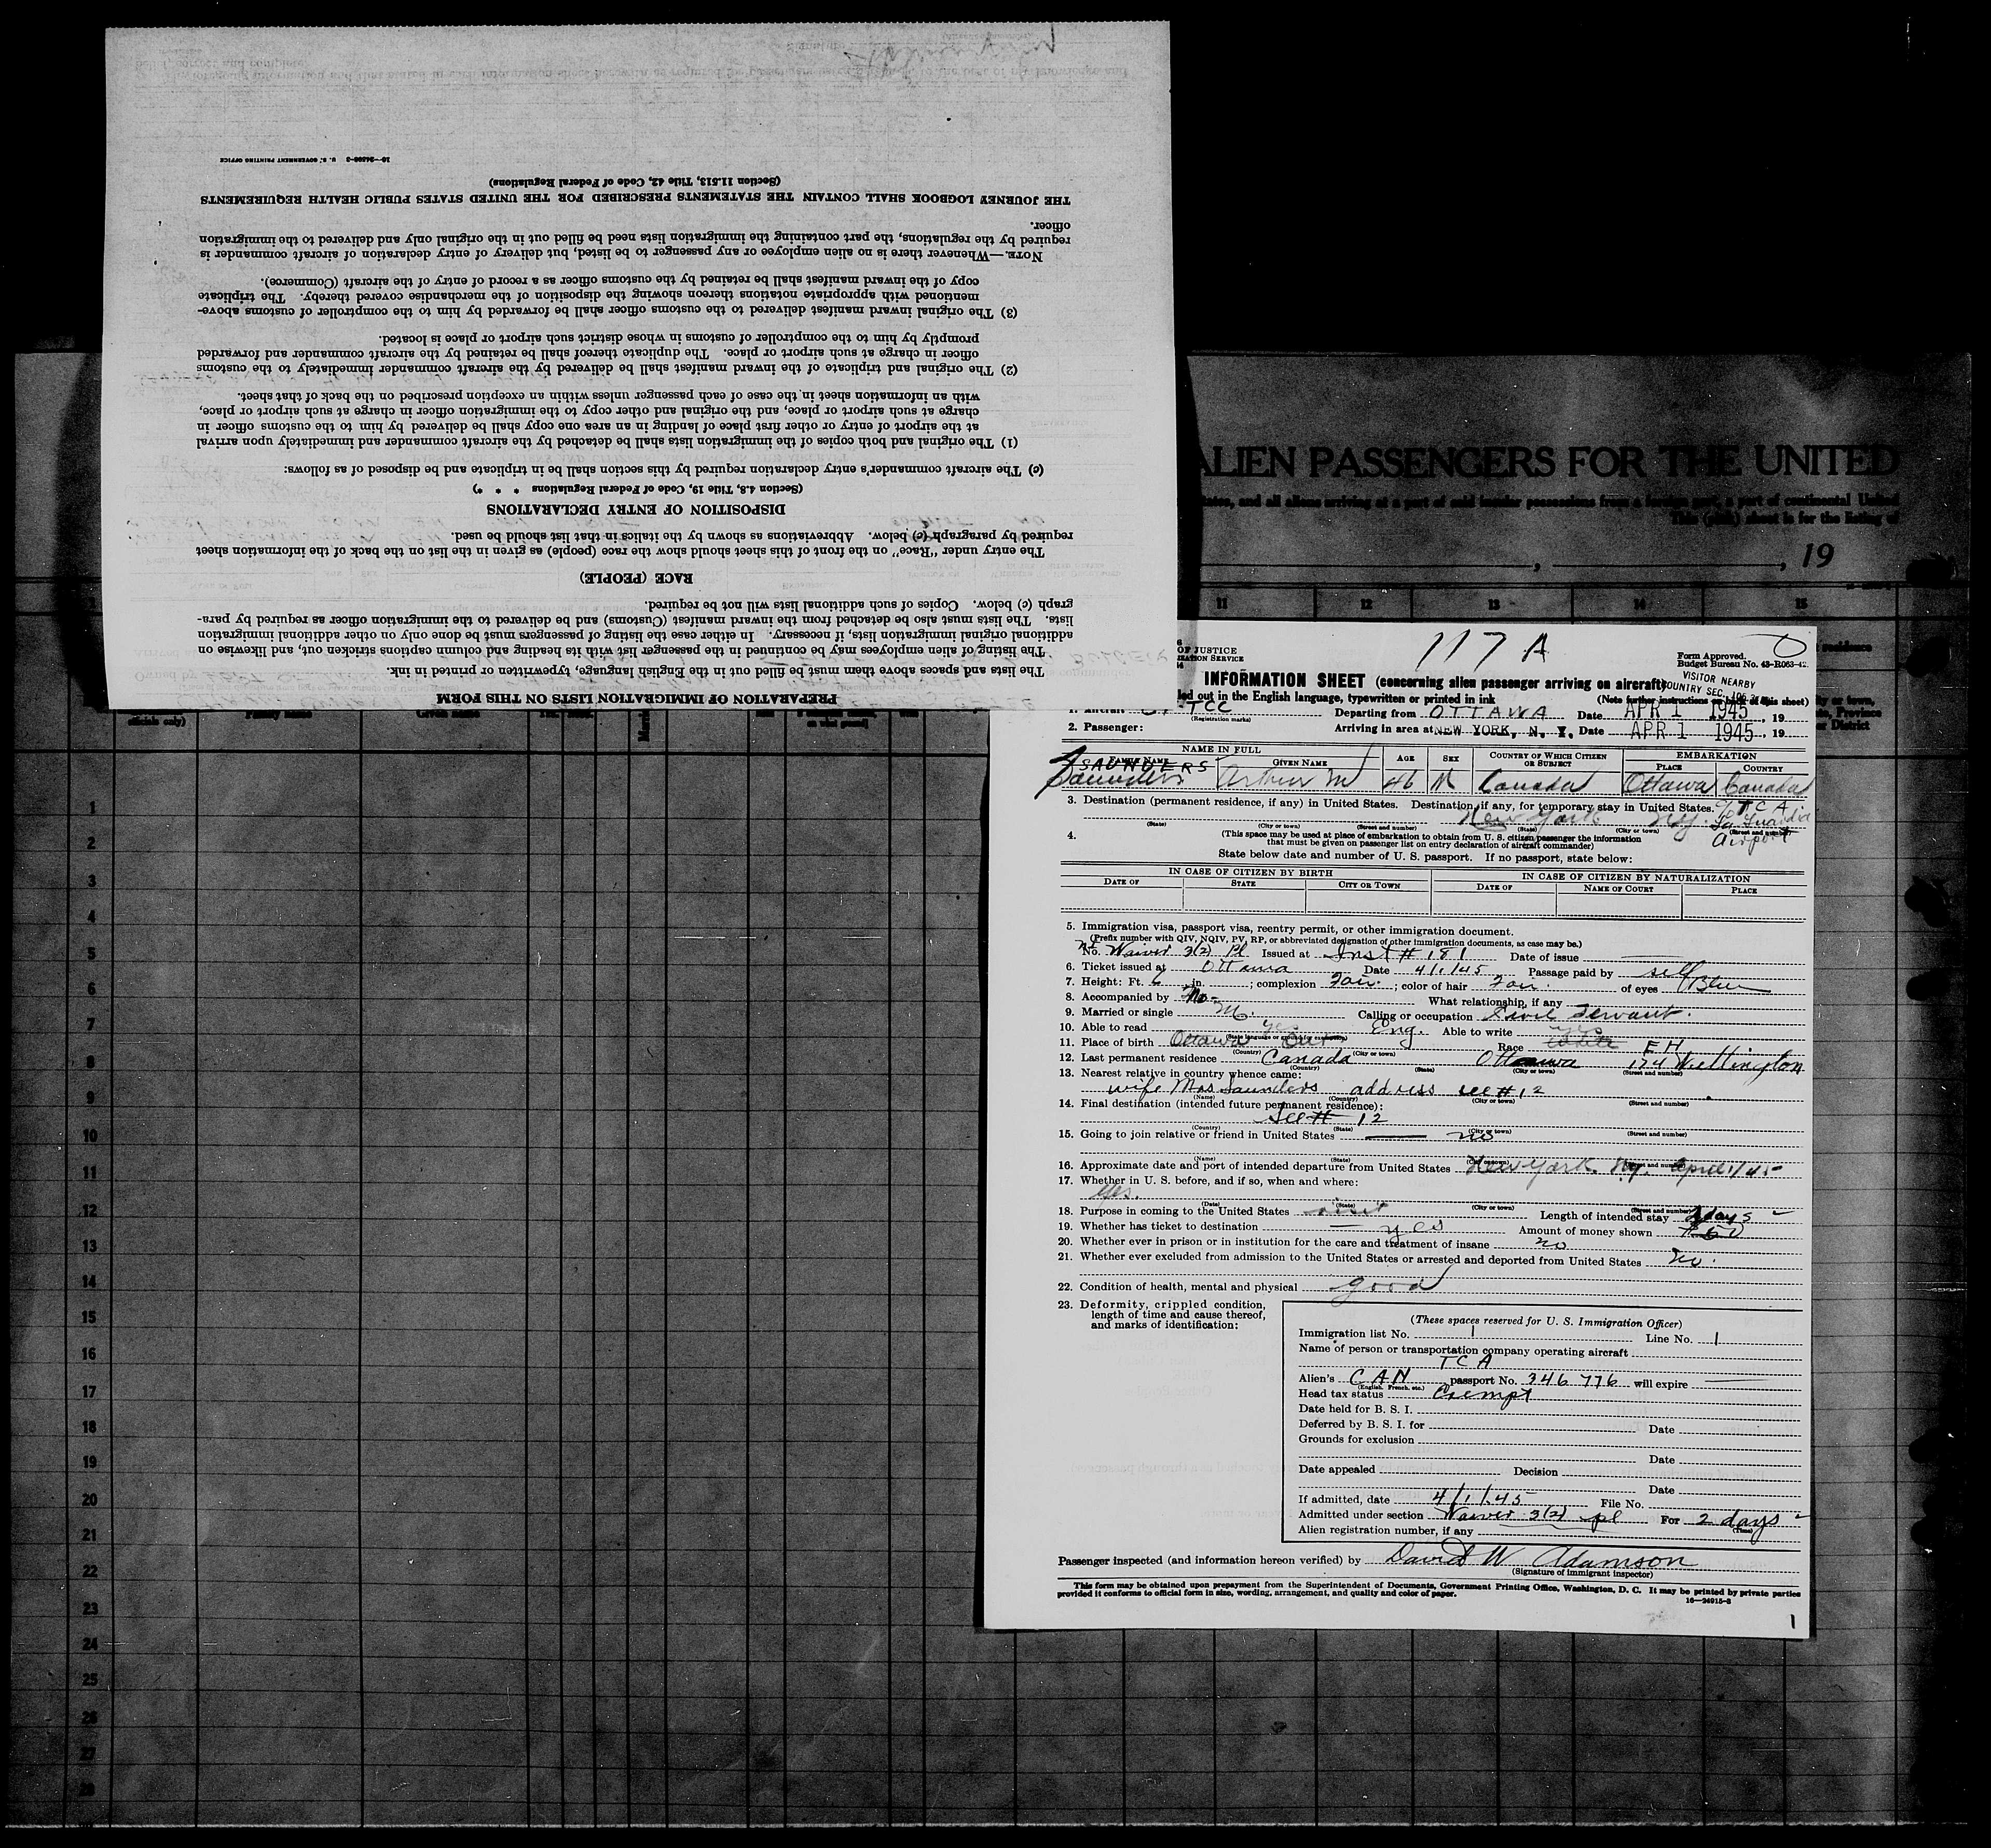 PREPARATION OF IMMIGRATION LISTS ON THIS FORM
The lists and spaces above them must be filled out in the English language, typewritten or printed in ink.
The listing of alien employees may be continued in the passenger list with its heading and column captions stricken out, and likewise on
additional original immigration lists, if necessary. In either case the listing of passengers must be done only on other additional immigration
lists. The lists must also be detached from the inward manifest (Customs) and be delivered to the immigration officer as required by para-
graph (c) below. Copies of such additional lists will not be required.
RACE (PEOPLE)
The entry under "Race" on the front of this sheet should show the race (people) as given in the list on the back of the information sheet
required by paragraph (c) below. Abbreviations as shown by the italics in that list should be used.
DISPOSITION OF ENTRY DECLARATIONS
(Section 4.8, Title 19, Code of Federal Regulations * * *)
(c) The aircraft commander's entry declaration required by this section shall be in triplicate and be disposed of as follows:
(1) The original and both copies of the immigration lists shall be detached by the aircraft commander and immediately upon arrival
at the airport of entry or other first place of landing in an area one copy shall be delivered by him to the customs officer in
charge at such airport or place, and the original and other copy to the immigration officer in charge at such airport or place,
with an information sheet in the case of each passenger unless within an exception prescribed on the back of that sheet.
(2) The original and triplicate of the inward manifest shall be delivered by the aircraft commander immediately to the customs
officer in charge at such airport or place. The duplicate thereof shall be retained by the aircraft commander and forwarded
promptly by him to the comptroller of customs in whose district such airport or place is located.
(3) The original inward manifest delivered to the customs officer shall be forwarded by him to the comptroller of customs above-
mentioned with appropriate notations thereon showing the disposition of the merchandise covered thereby. The triplicate
copy of the inward manifest shall be retained by the customs officer as a record of entry of the aircraft (Commerce).
NOTE.—Whenever there is no alien employee or any passenger to be listed, but delivery of entry declaration of aircraft commander is
required by the regulations, the part containing the immigration lists need be filled out in the original only and delivered to the immigration
officer.
THE JOURNEY LOGBOOK SHALL CONTAIN THE STATEMENTS PRESCRIBED FOR THE UNITED STATES PUBLIC HEALTH REQUIREMENTS
(Section 11.513, Title 42, Code of Federal Regulations)
U. S. GOVERNMENT PRINTING OFFICE
ALIEN PASSENGERS FOR THE UNITED
, and all aliens arriving at a port of said insular possessions from a foreign port, a port of continental United
This sheet is for the listing of
, 19
11 12 13 14 15
OF JUSTICE
SERVICE
117 A
Form Approved.
Budget Bureau No. 43-R063-42.
VISITOR NEARBY
COUNTRY SEC.
INFORMATION SHEET (concerning alien passenger arriving on aircraft)
out in the English language, typewritten or printed in ink (Note further instructions on back of this sheet)
1. Aircraft TCC (Registration marks) Departing from OTTAWA Date APR 1 1945, 19
2. Passenger: Arriving in area at NEW YORK, N. Y. Date APR 1 1945, 19
NAME IN FULL AGE SEX COUNTRY OF WHICH CITIZEN OR SUBJECT EMBARKATION
FAMILY NAME GIVEN NAME PLACE COUNTRY
SAUNDERS
Saunders Arthur M 46 M Canada Ottawa Canada
3. Destination (permanent residence, if any) in United States. Destination, if any, for temporary stay in United States. c/o T C A
New York N.Y. La Guardia
(State) (City or town) (Street and number) (State) (City or town) (Street and number)
Airport
4. (This space may be used at place of embarkation to obtain from U. S. citizen passenger the information
that must be given on passenger list on entry declaration of aircraft commander)
State below date and number of U. S. passport. If no passport, state below:
IN CASE OF CITIZEN BY BIRTH IN CASE OF CITIZEN BY NATURALIZATION
DATE OF STATE CITY OR TOWN DATE OF NAME OF COURT PLACE
5. Immigration visa, passport visa, reentry permit, or other immigration document.
(Prefix number with QIV, NQIV, PV, RP, or abbreviated designation of other immigration documents, as case may be.)
No. Waiver 3(2) Pl Issued at Inst # 181 Date of issue
6. Ticket issued at Ottawa Date 4/1/45 Passage paid by self
7. Height: Ft. 6 in. ; complexion Fair. ; color of hair Fair. of eyes Blue
8. Accompanied by No What relationship, if any
9. Married or single M. Calling or occupation Civil Servant.
10. Able to read yes Eng. Able to write yes
11. Place of birth Ottawa Ont Race White EH
12. Last permanent residence Canada Ottawa 174 Wellington
(Country) (State) (City or town) (Street and number)
13. Nearest relative in country whence came:
wife Mrs Saunders address see # 12
(Name) (Country) (City or town) (Street and number)
14. Final destination (intended future permanent residence):
See # 12
(Country) (State) (City or town) (Street and number)
15. Going to join relative or friend in United States no
(Name) (State) (City or town) (Street and number)
16. Approximate date and port of intended departure from United States New York. N.y. April 1/45
17. Whether in U. S. before, and if so, when and where:
Yes.
(Date) (State) (City or town) (Street and number)
18. Purpose in coming to the United States visit Length of intended stay 2 days
19. Whether has ticket to destination yes Amount of money shown $60
20. Whether ever in prison or in institution for the care and treatment of insane no
21. Whether ever excluded from admission to the United States or arrested and deported from United States no.
22. Condition of health, mental and physical good
23. Deformity, crippled condition,
length of time and cause thereof,
and marks of identification:
(These spaces reserved for U. S. Immigration Officer)
Immigration list No. 1 Line No. 1
Name of person or transportation company operating aircraft
TCA
Alien's CAN passport No. 346 776 will expire
(English, French, etc.)
Head tax status Exempt
Date held for B. S. I.
Deferred by B. S. I. for Date
Grounds for exclusion
Date
Date appealed Decision
Date
If admitted, date 4/1/45 File No.
Admitted under section Waiver 3(2) pl For 2 days
(Time)
Alien registration number, if any
Passenger inspected (and information hereon verified) by David W Adamson
(Signature of immigrant inspector)
This form may be obtained upon prepayment from the Superintendent of Documents, Government Printing Office, Washington, D. C. It may be printed by private parties
provided it conforms to official form in size, wording, arrangement, and quality and color of paper.
16—24915-3
1
1
2
3
4
5
6
7
8
9
10
11
12
13
14
15
16
17
18
19
20
21
22
23
24
25
26
27
28